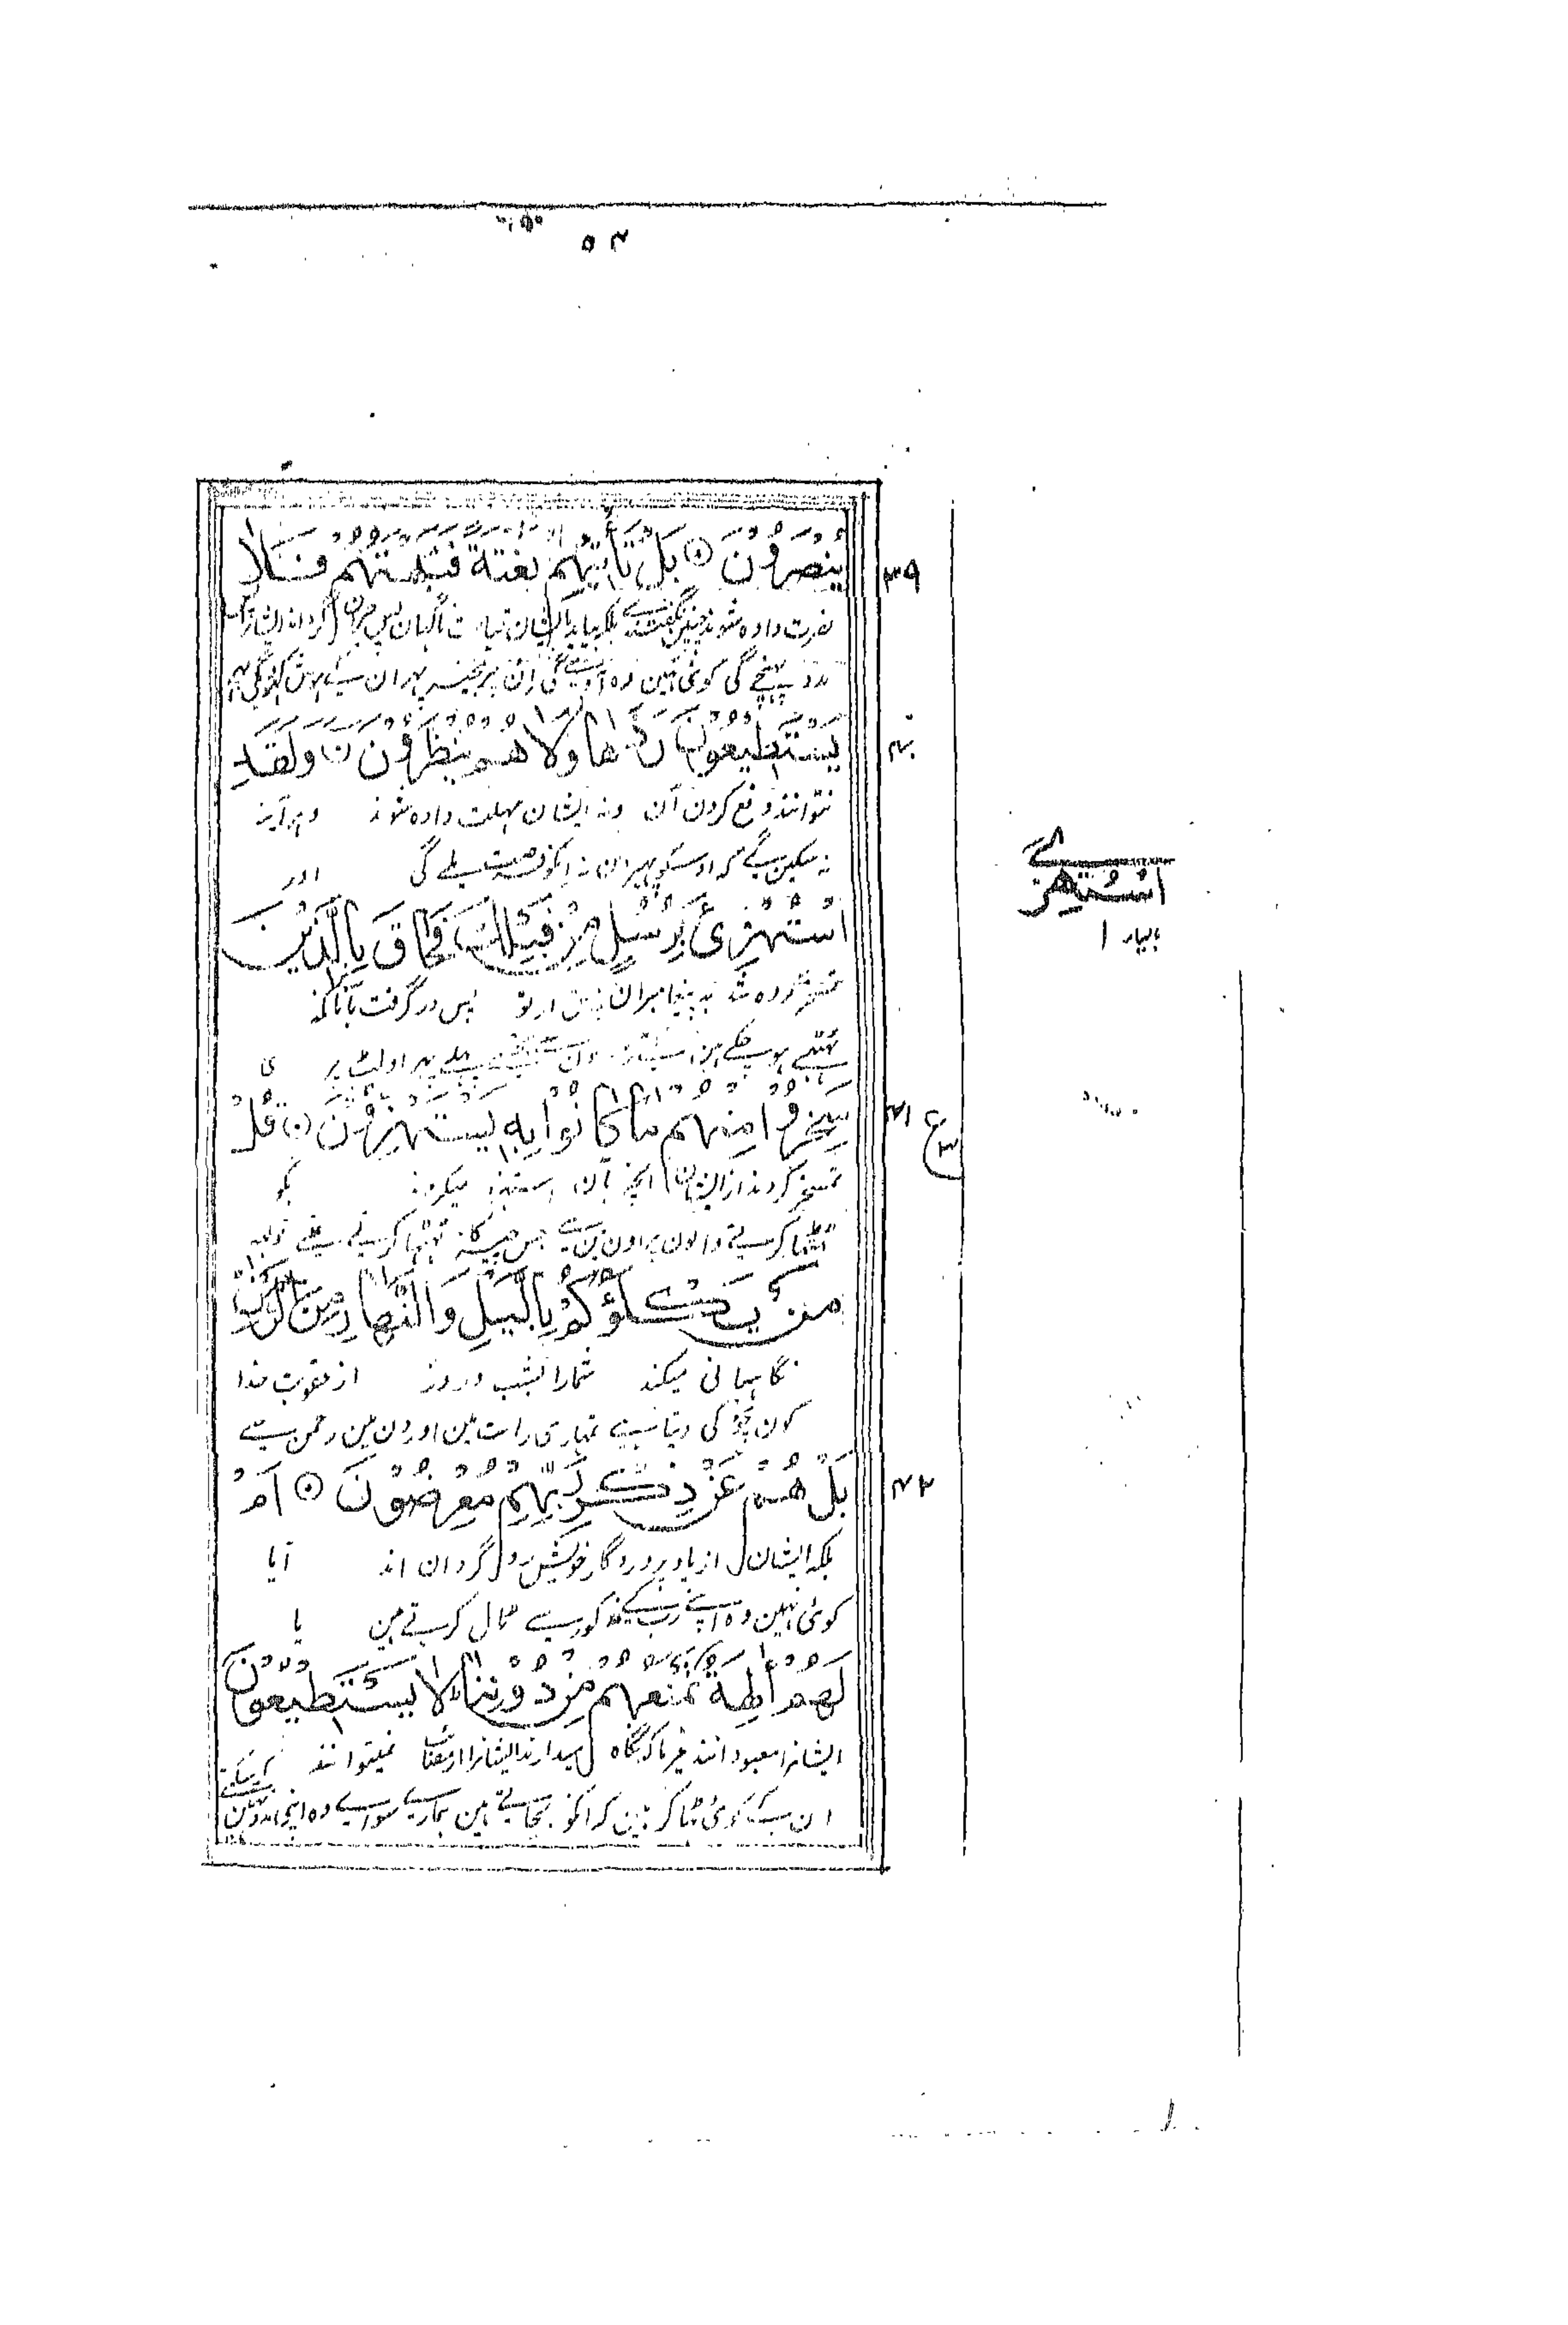 ۵۴
يُنْصَرُوْنَ ۞ بَلْ تَأْتِيْهِمْ بَغْتَةً فَتَبْهَتُهُمْ فَلَا
۳۹
نصرت داده شوند بلکه بیاید بایشان ناگهان پس
مدد پہنچے گی کوئی نہین وہ
يَسْتَطِيْعُوْنَ رَدَّهَا وَلَا هُمْ يُنْظَرُوْنَ ۞ وَلَقَدِ
۴۰
نتوانند دفع کردن آن و نه ایشان مہلت داده شوند و ہرآینه
نہ سکین گے کہ اوسکو پہیر دین نہ انکو فرصت ملے گی اور
اسْتُهْزِئَ بِرُسُلٍ مِنْ قَبْلِكَ فَحَاقَ بِالَّذِيْنَ
اُسْتُهْزِئَ
بالیاء
تمسخر کرده شد به پیغامبران پیش از تو پس در گرفت بآنانکه
ٹہٹے ہو چکے ہین پہلے پہر اولٹ پڑی
سَخِرُوْا مِنْهُمْ مَا كَانُوْا بِهٖ يَسْتَهْزِءُوْنَ ۞ قُلْ
۴۱ ع ۳
تمسخر کردند از ایشان آنچه بآن استہزا میکردند بگو
ٹہٹا کرنے والون پر اون مین سے جس چیز کا ٹہٹہا کرتے تھے تو کہہ
مَنْ يَكْلَؤُكُمْ بِاللَّيْلِ وَالنَّهَارِ مِنَ الرَّحْمٰنِ
نگاہبانی میکند شما را بشب و روز از عقوبت خدا
کون چوکی دیتا ہے تمہاری رات مین اور دن مین رحمن سے
بَلْ هُمْ عَنْ ذِكْرِ رَبِّهِمْ مُعْرِضُوْنَ ۞ اَمْ
۴۲
بلکه ایشان از یاد پروردگار خویش رو گردان اند آیا
کوئی نہین وہ اپنے رب کے مذکور سے ٹال کرتے ہین یا
لَهُمْ اٰلِهَةٌ تَمْنَعُهُمْ مِنْ دُوْنِنَا لَا يَسْتَطِيْعُوْنَ
ایشانرا معبودانند غیر ما که نگاه میدارند ایشانرا نمیتوانند
ان کے کوئی ٹہاکر ہین کہ انکو بچاتے ہین ہمارے سواے وہ اپنی مدد